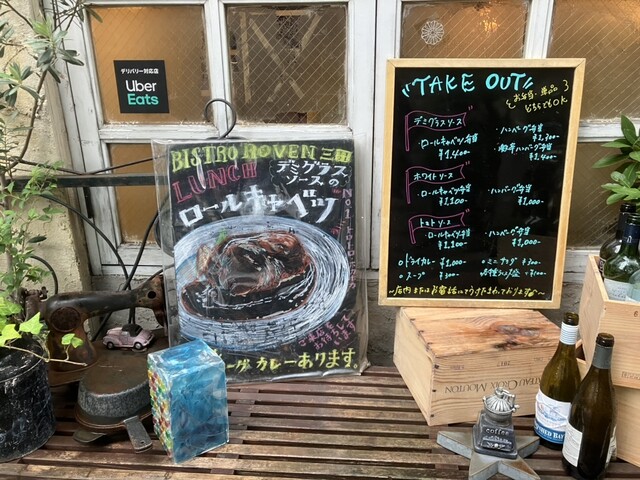 デリバリー対応店
Uber
Eats
BISTRO ROVEN 三田
LUNCH
デミグラス
ソースの
ロールキャベツ
カレーあります。
"TAKE OUT"
お弁当・単品
どちらでもOK
デミグラスソース
・ロールキャベツ弁当
¥1,400
・ハンバーグ弁当
¥1,300
ホワイトソース
・ロールキャベツ弁当
¥1,200
・ハンバーグ弁当
¥1,100
トマトソース
・ロールキャベツ弁当
¥1,100
・ハンバーグ弁当
¥1,000
○ドライカレー ¥1,000
○スープ ¥300
○ミニサラダ ¥300
~店内またはお電話にてうけたまわっております~
CHATEAU CROIX MOUTON
coffee